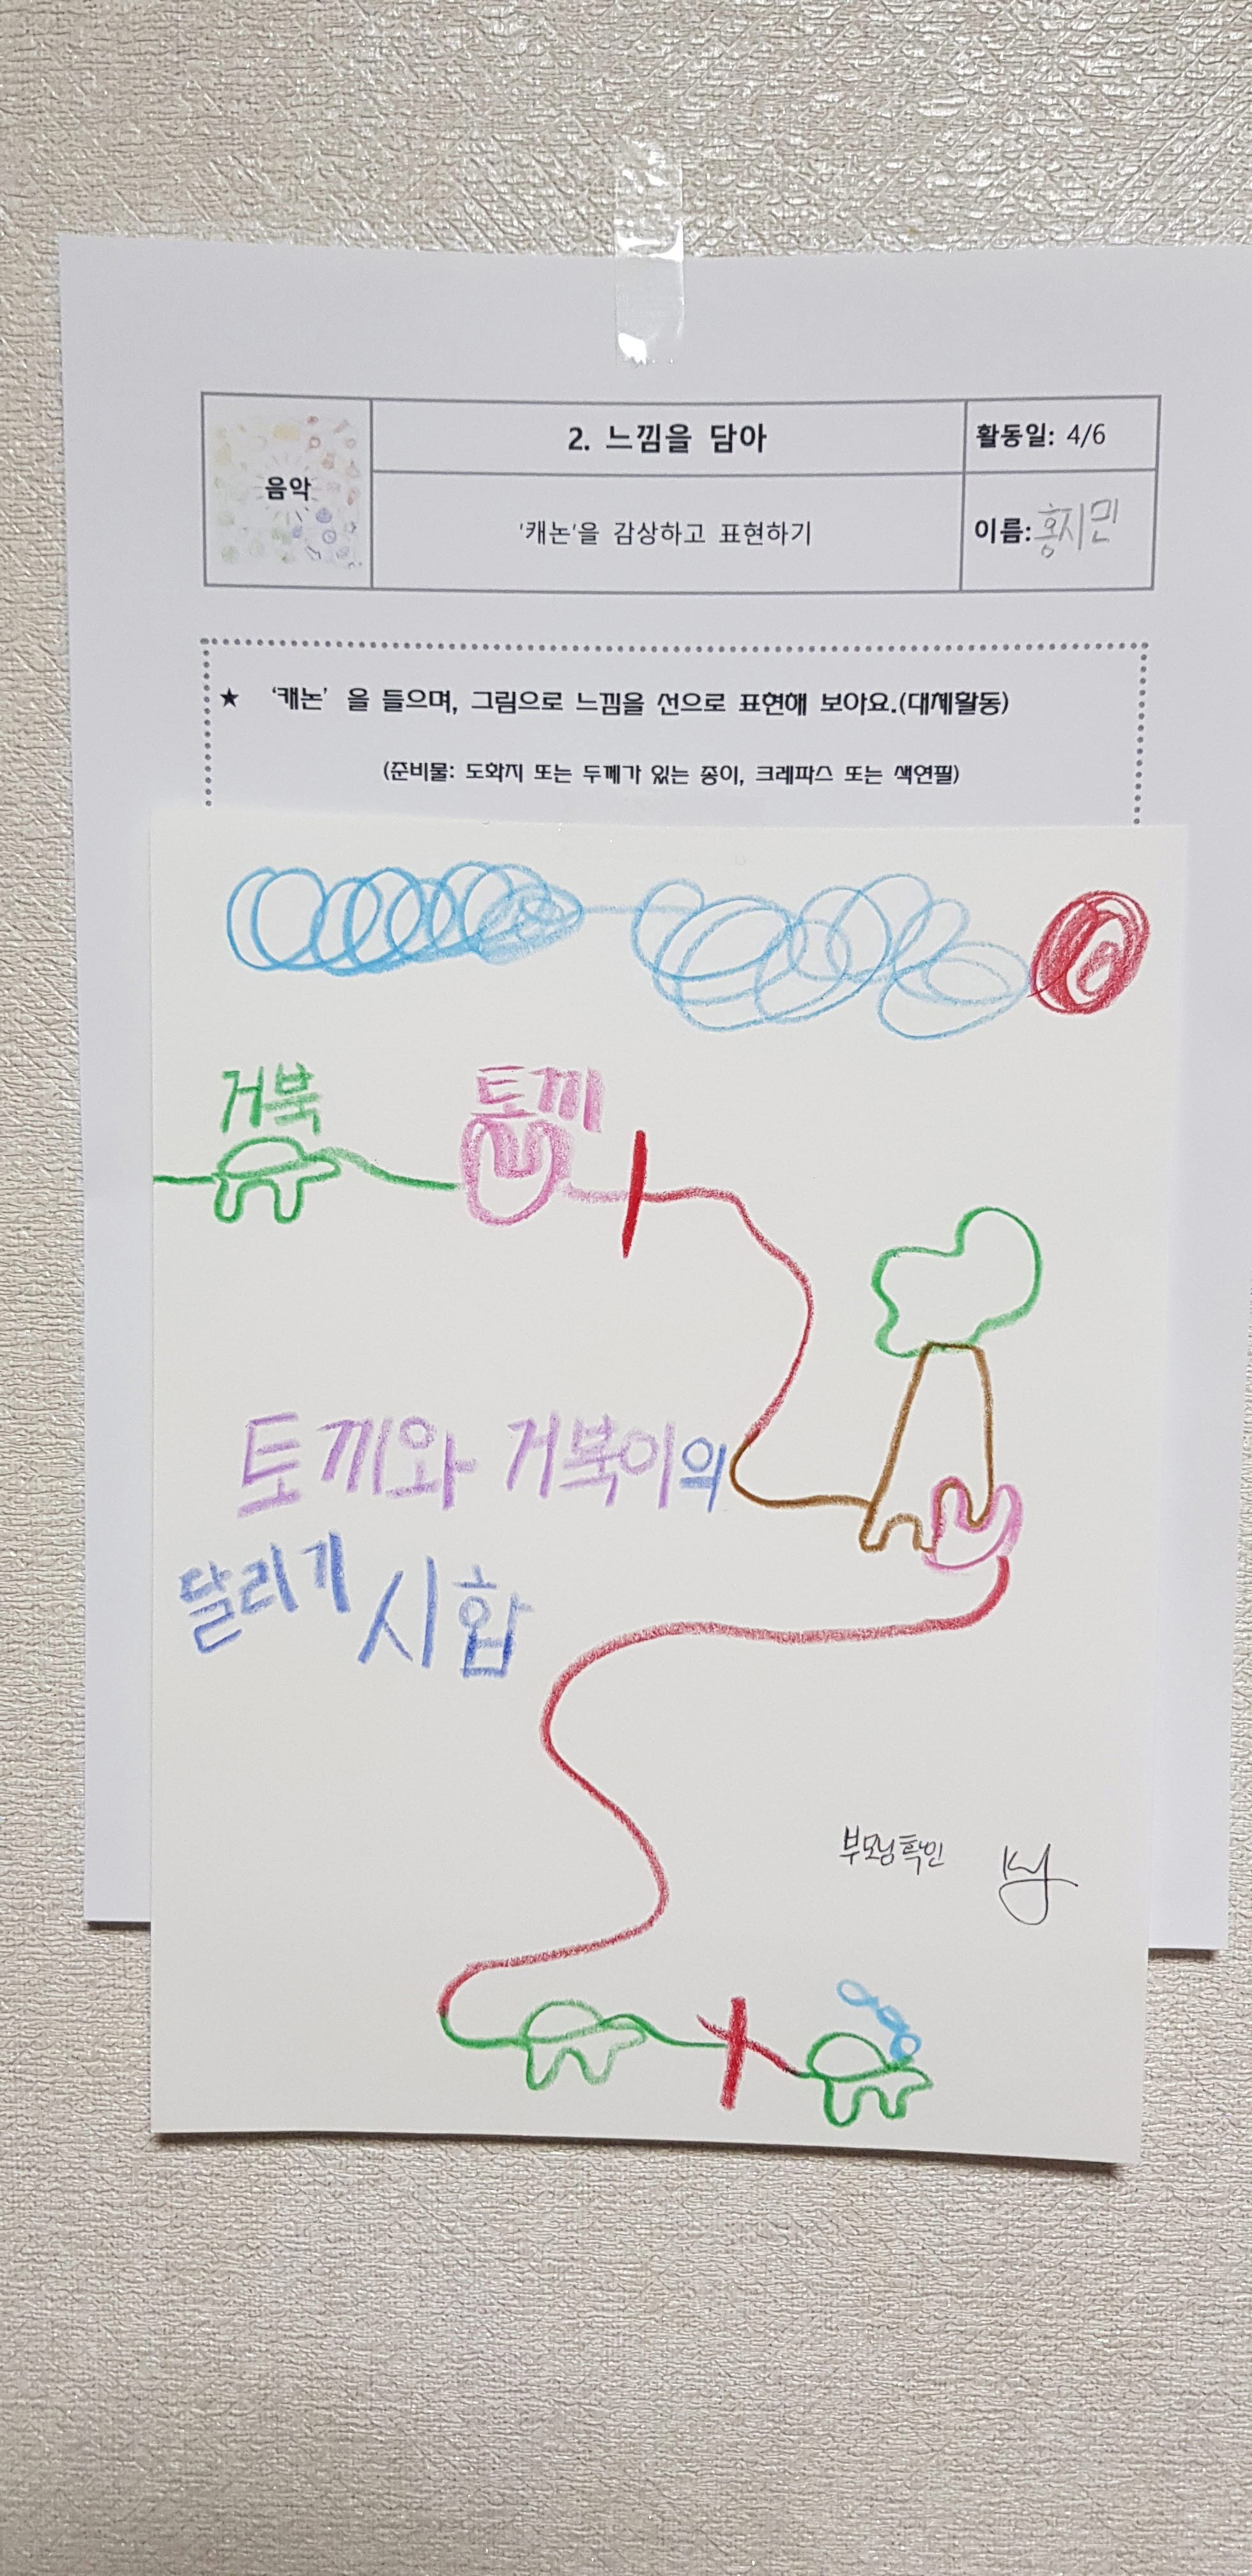 음악
2. 느낌을 담아
활동일: 4/6
'캐논'을 감상하고 표현하기
이름: 홍지민
★ '캐논' 을 들으며, 그림으로 느낌을 선으로 표현해 보아요.(대체활동)
(준비물: 도화지 또는 두께가 있는 종이, 크레파스 또는 색연필)
거북
토끼
토끼와 거북이의
달리기 시합
부모님확인